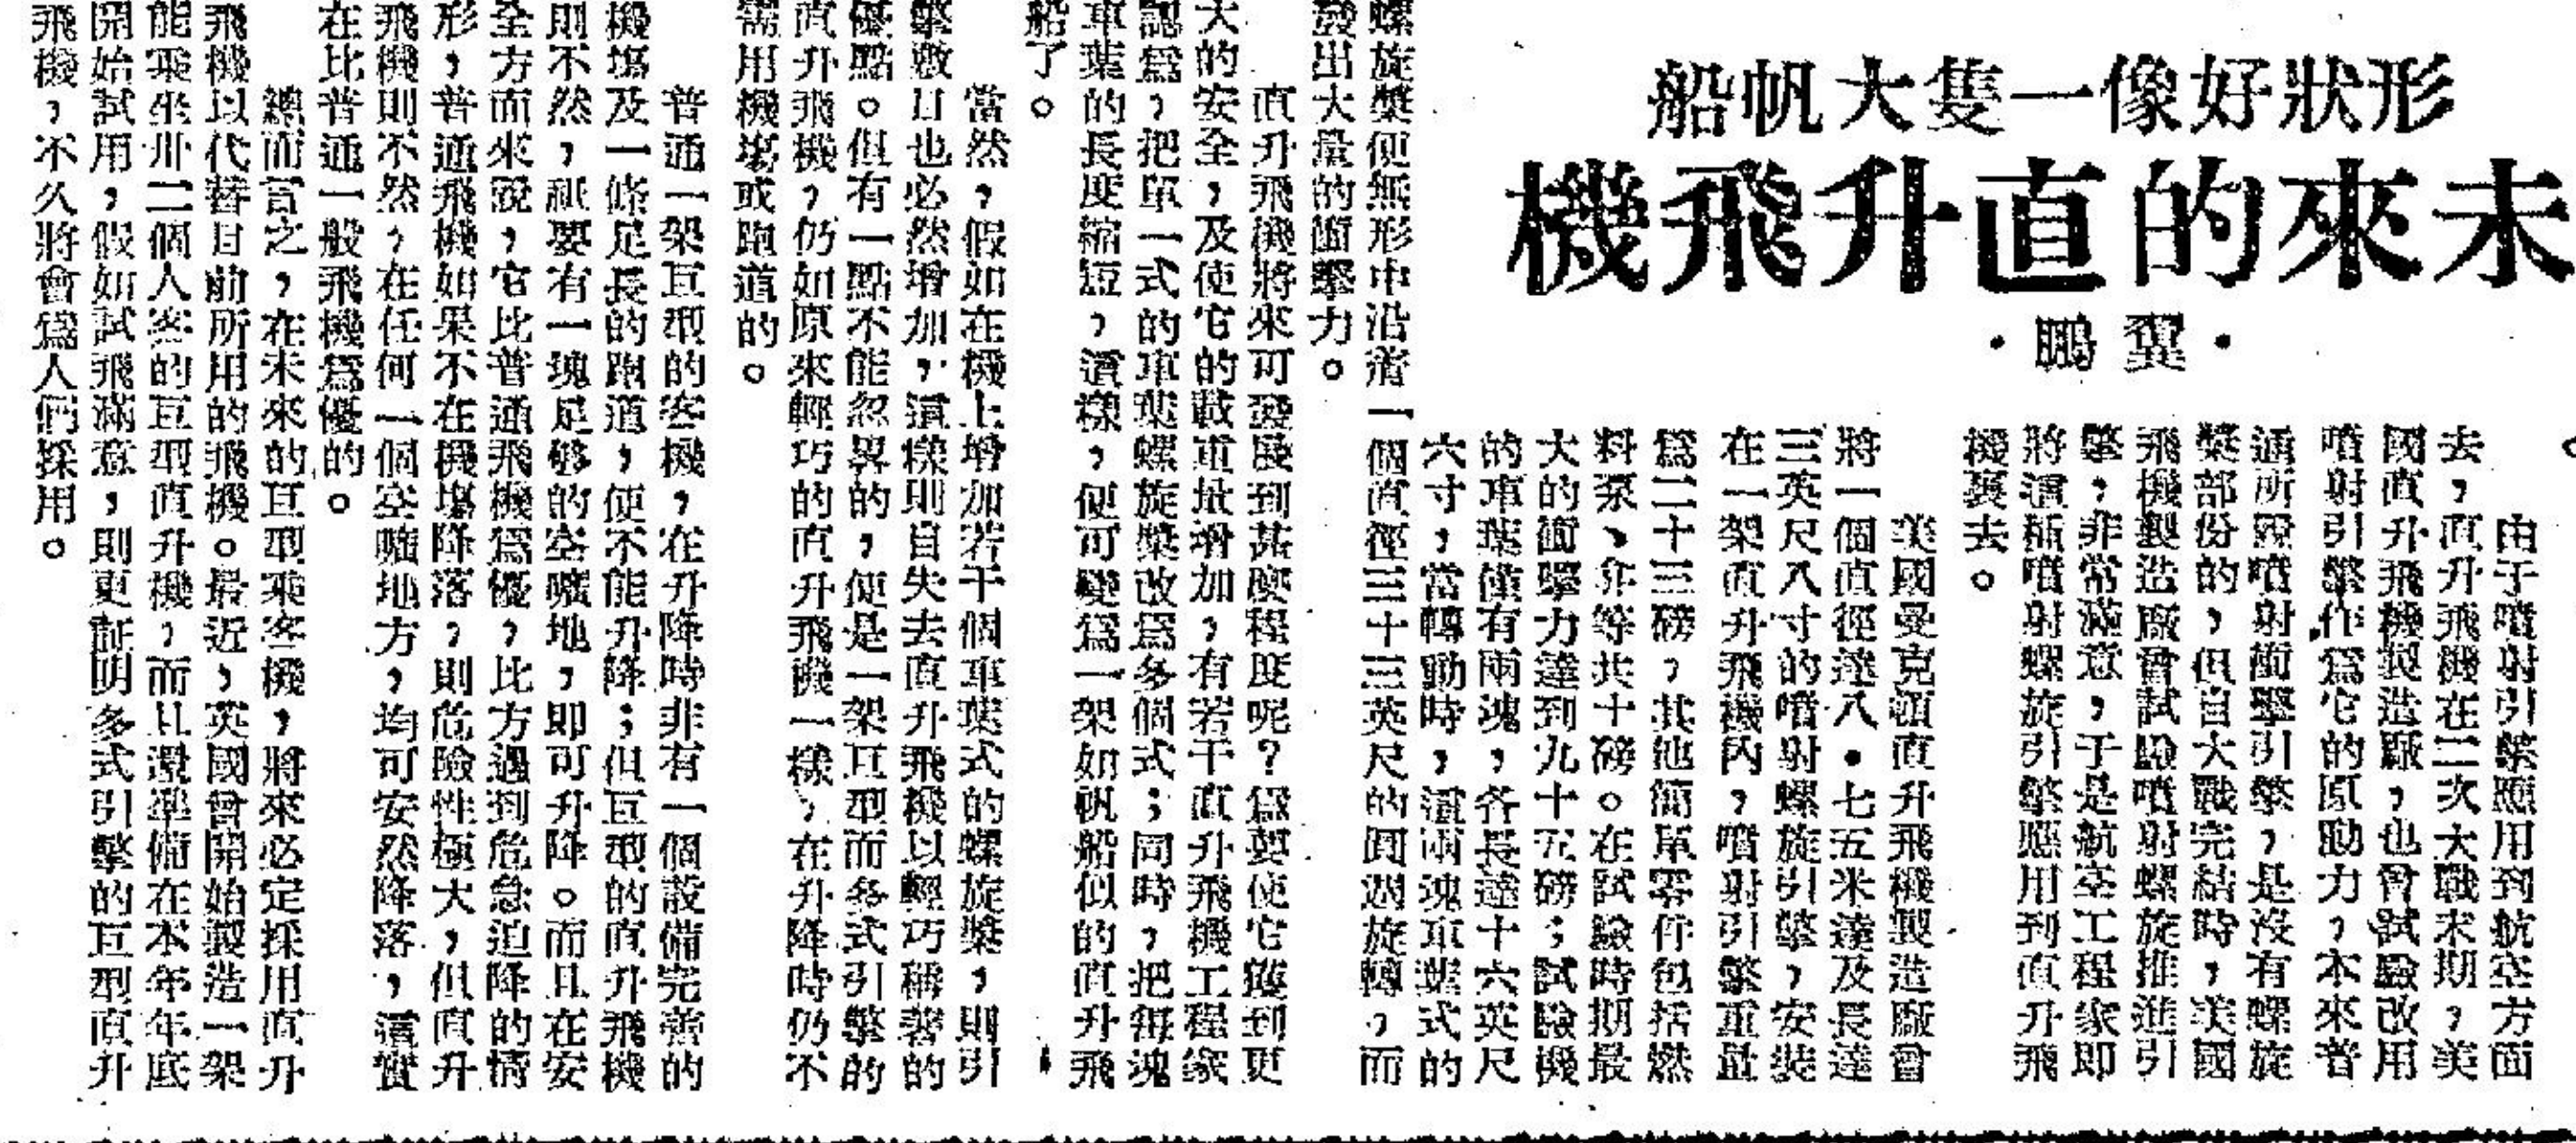 形狀好像一隻大帆船
未來的直升飛機
·翼鵬·
。
由于噴射引擎應用到航空方面
去，直升飛機在二次大戰末期，美
國直升飛機製造廠，也曾試驗改用
噴射引擎作爲它的原助力，本來普
通所謂噴射衝擊引擎，是沒有螺旋
槳部份的，但自大戰完結時，美國
飛機製造廠曾試驗噴射螺旋推進引
擎，非常滿意，于是航空工程家即
將這種噴射螺旋引擎應用到直升飛
機裏去。
美國曼克頓直升飛機製造廠曾
將一個直徑達八·七五米達及長達
三英尺八寸的噴射螺旋引擎，安裝
在一架直升飛機內，噴射引擎重量
爲二十三磅，其他簡單零件包括燃
料泵、弁等共十磅。在試驗時期最
大的衝擊力達到九十五磅；試驗機
的車葉僅有兩塊，各長達十六英尺
六寸，當轉動時，這兩塊車葉式的
螺旋槳便無形中沿着一個直徑三十三英尺的圓週旋轉，而
發出大量的衝擊力。
直升飛機將來可發展到甚麼程度呢？爲要使它獲到更
大的安全，及使它的載重量增加，有若干直升飛機工程家
認爲，把單一式的車葉螺旋槳改爲多個式；同時，把每塊
車葉的長度縮短，這樣，便可變爲一架如帆船似的直升飛
船了。
當然，假如在機上增加若干個車葉式的螺旋槳，則引
擎數目也必然增加，這樣則自失去直升飛機以輕巧稱著的
優點。但有一點不能忽畧的，便是一架互型而多式引擎的
直升飛機，仍如原來輕巧的直升飛機一樣，在升降時仍不
需用機塲或跑道的。
普通一架互型的客機，在升降時非有一個設備完善的
機塲及一條足長的跑道，便不能升降；但互型的直升飛機
則不然，祇要有一塊足够的空曠地，即可升降。而且在安
全方面來說，它比普通飛機爲優，比方遇到危急迫降的情
形，普通飛機如果不在機塲降落，則危險性極大，但直升
飛機則不然，在任何一個空曠地方，均可安然降落，這實
在比普通一般飛機爲優的。
總而言之，在未來的互型乘客機，將來必定採用直升
飛機以代替目前所用的飛機。最近，英國曾開始製造一架
能乘坐卅二個人客的互型直升機，而且還準備在本年年底
開始試用，假如試飛滿意，則更証明多式引擎的互型直升
飛機，不久將會爲人們採用。